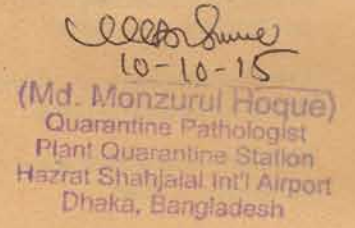 10-10-15
(Md. Monzurul Hoque)
Quarantine Pathologist
Plant Quarantine Station
Hazrat Shahjalal Int'l Airport
Dhaka, Bangladesh